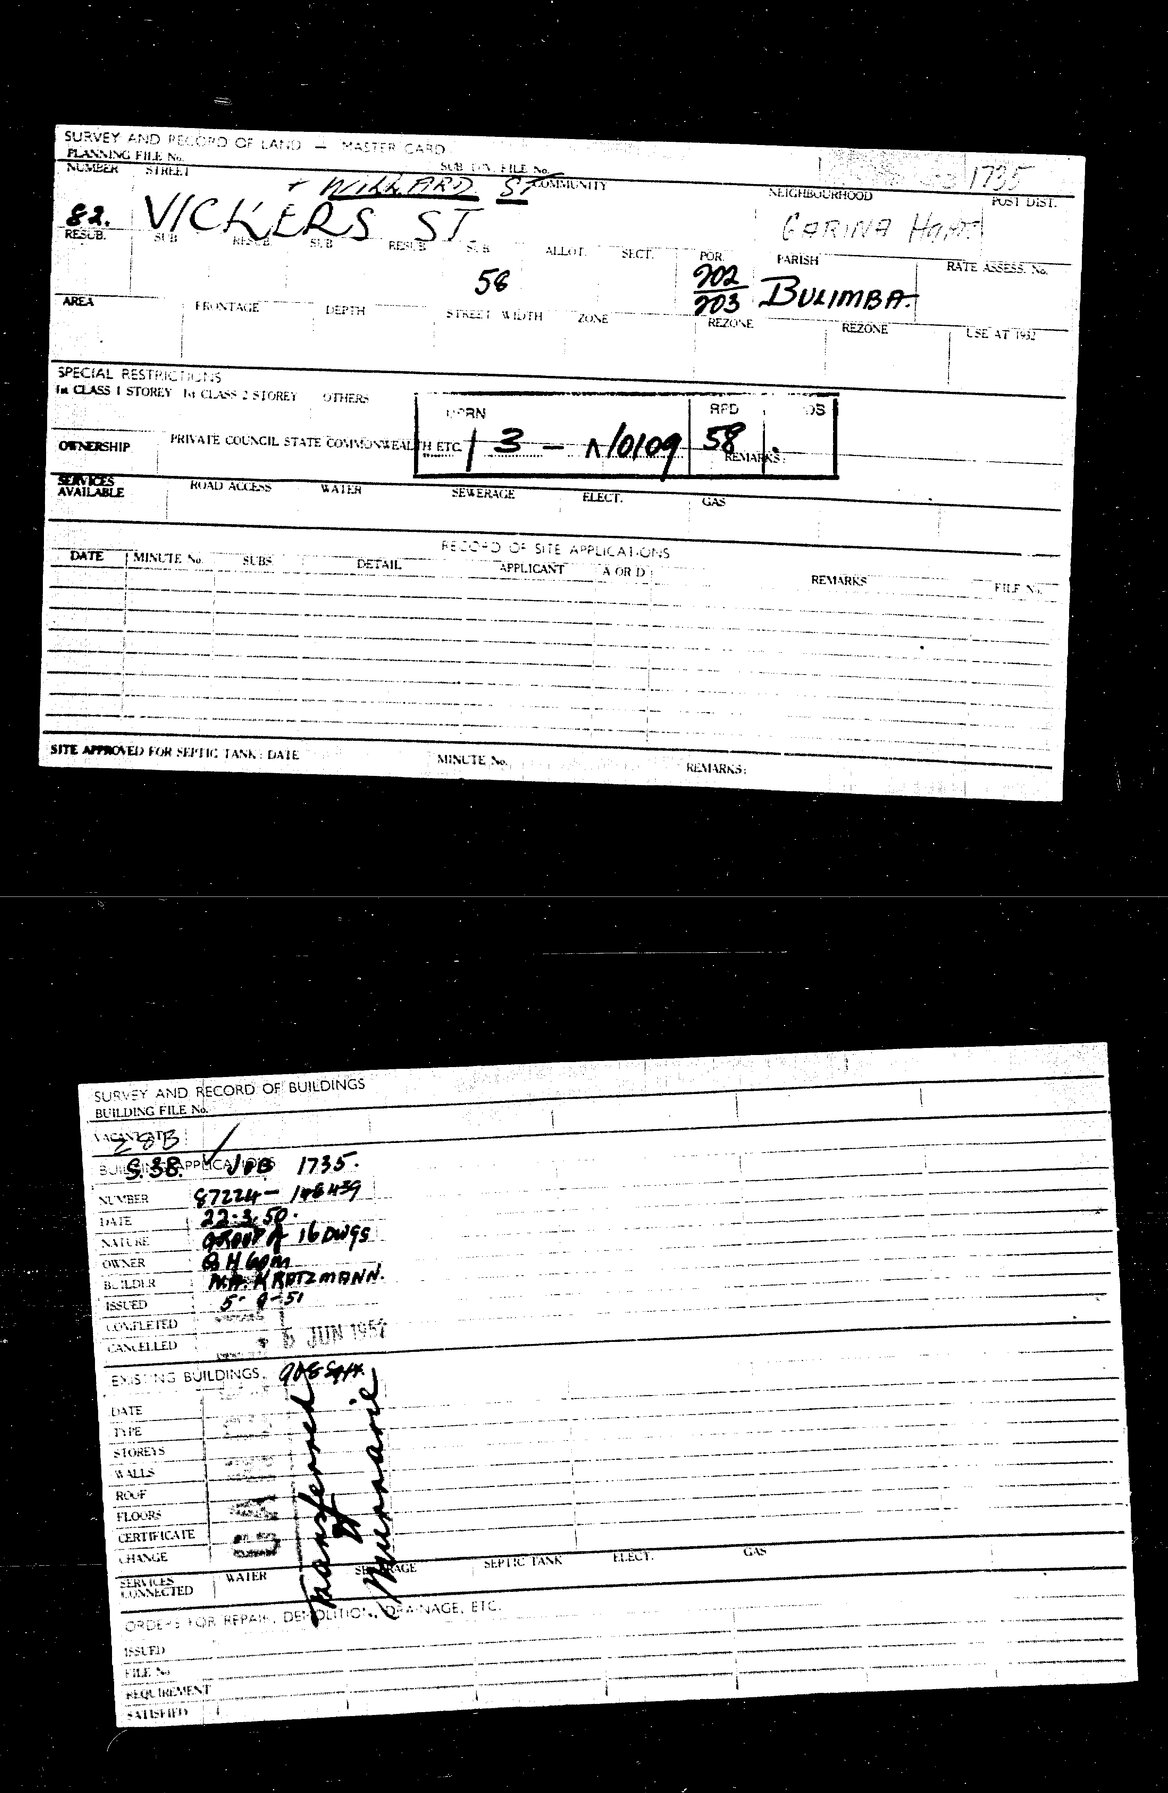 SURVEY AND RECORD OF LAND — MASTER CARD
PLANNING FILE No. SUB DIV. FILE No. 1735
NUMBER STREET + WILLARD ST COMMUNITY NEIGHBOURHOOD POST DIST.
82. VICKERS ST CARINA
RESUB. SUB RESUB SUB RESUB SUB ALLOT. SECT. POR. PARISH RATE ASSESS. No.
58 202/203 BULIMBA.
AREA FRONTAGE DEPTH STREET WIDTH ZONE REZONE REZONE USE AT 1952
SPECIAL RESTRICTIONS
1st CLASS 1 STOREY 1st CLASS 2 STOREY OTHERS
RPD
OWNERSHIP PRIVATE COUNCIL STATE COMMONWEALTH ETC. 3 — 58 REMARKS:
SERVICES AVAILABLE ROAD ACCESS WATER SEWERAGE ELECT. GAS
RECORD OF SITE APPLICATIONS
DATE MINUTE No. SUBS DETAIL APPLICANT A OR D REMARKS FILE No.
SITE APPROVED FOR SEPTIC TANK: DATE MINUTE No. REMARKS:
SURVEY AND RECORD OF BUILDINGS
BUILDING FILE No.
BUILDING APPLICATIONS 1735.
NUMBER 87224 —
DATE 22.3.50.
NATURE GROUP A 16 DWGS
OWNER
BUILDER KRATZMANN.
ISSUED 5-9-51
COMPLETED
CANCELLED JUN 1957
EXISTING BUILDINGS.
DATE
TYPE
STOREYS
WALLS
ROOF
FLOORS
CERTIFICATE
CHANGE
Transferred
SERVICES CONNECTED WATER SEWERAGE SEPTIC TANK ELECT. GAS
ORDERS FOR REPAIR, DEMOLITION, DRAINAGE, ETC.
ISSUED
FILE No
REQUIREMENT
SATISFIED